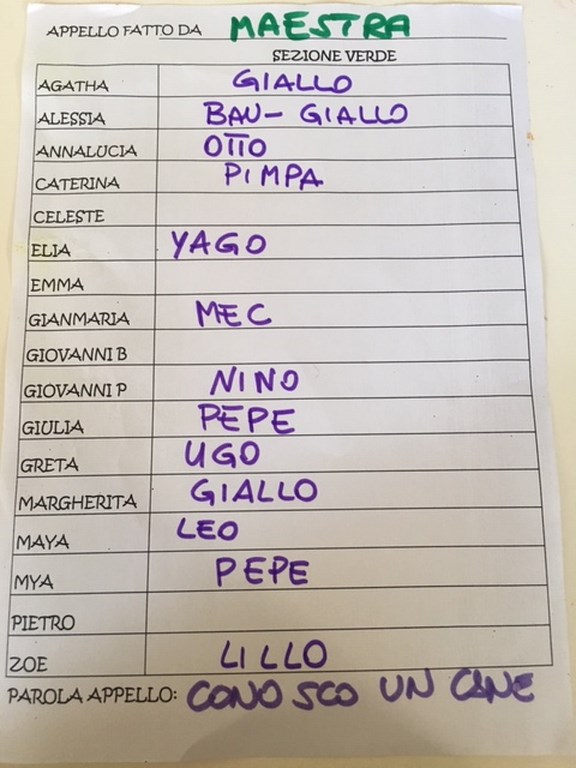 APPELLO FATTO DA MAESTRA
SEZIONE VERDE
AGATHA GIALLO
ALESSIA BAU- GIALLO
ANNALUCIA OTTO
CATERINA PIMPA
CELESTE
ELIA YAGO
EMMA
GIANMARIA MEC
GIOVANNI B
GIOVANNI P NINO
GIULIA PEPE
GRETA UGO
MARGHERITA GIALLO
MAYA LEO
MYA PEPE
PIETRO
ZOE LILLO
PAROLA APPELLO: CONOSCO UN CANE